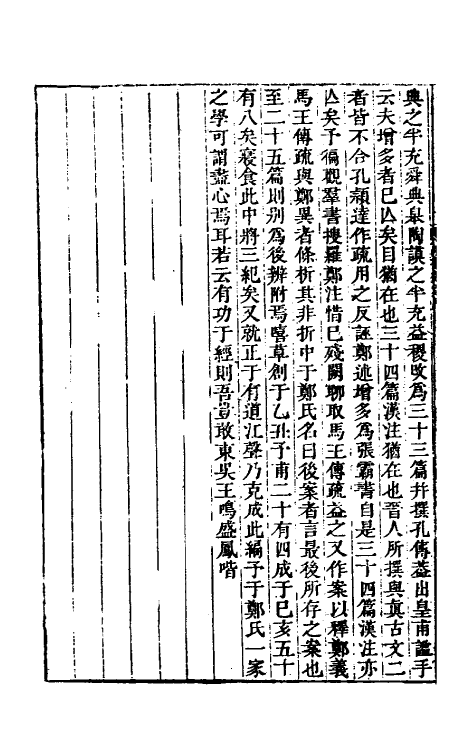 典之半充舜典臯陶謨之半充益稷改爲三十三篇幷撰孔傳蓋出皇甫謐手
云夫增多者已亾矣目猶在也三十四篇漢注猶在也晉人所撰與眞古文二
者皆不合孔穎達作疏用之反誣鄭述增多爲張霸書自是三十四篇漢注亦
亾矣予徧觀羣書搜羅鄭注惜已殘闕聊取馬王傳疏益之又作案以釋鄭義
馬王傳疏與鄭異者條析其非折中于鄭氏名曰後案者言最後所存之案也
至二十五篇則别爲後辨附焉噫草創于乙丑予甫二十有四成于己亥五十
有八矣寢食此中將三紀矣又就正于有道江聲乃克成此編予于鄭氏一家
之學可謂盡心焉耳若云有功于經則吾豈敢東吳王鳴盛鳳喈